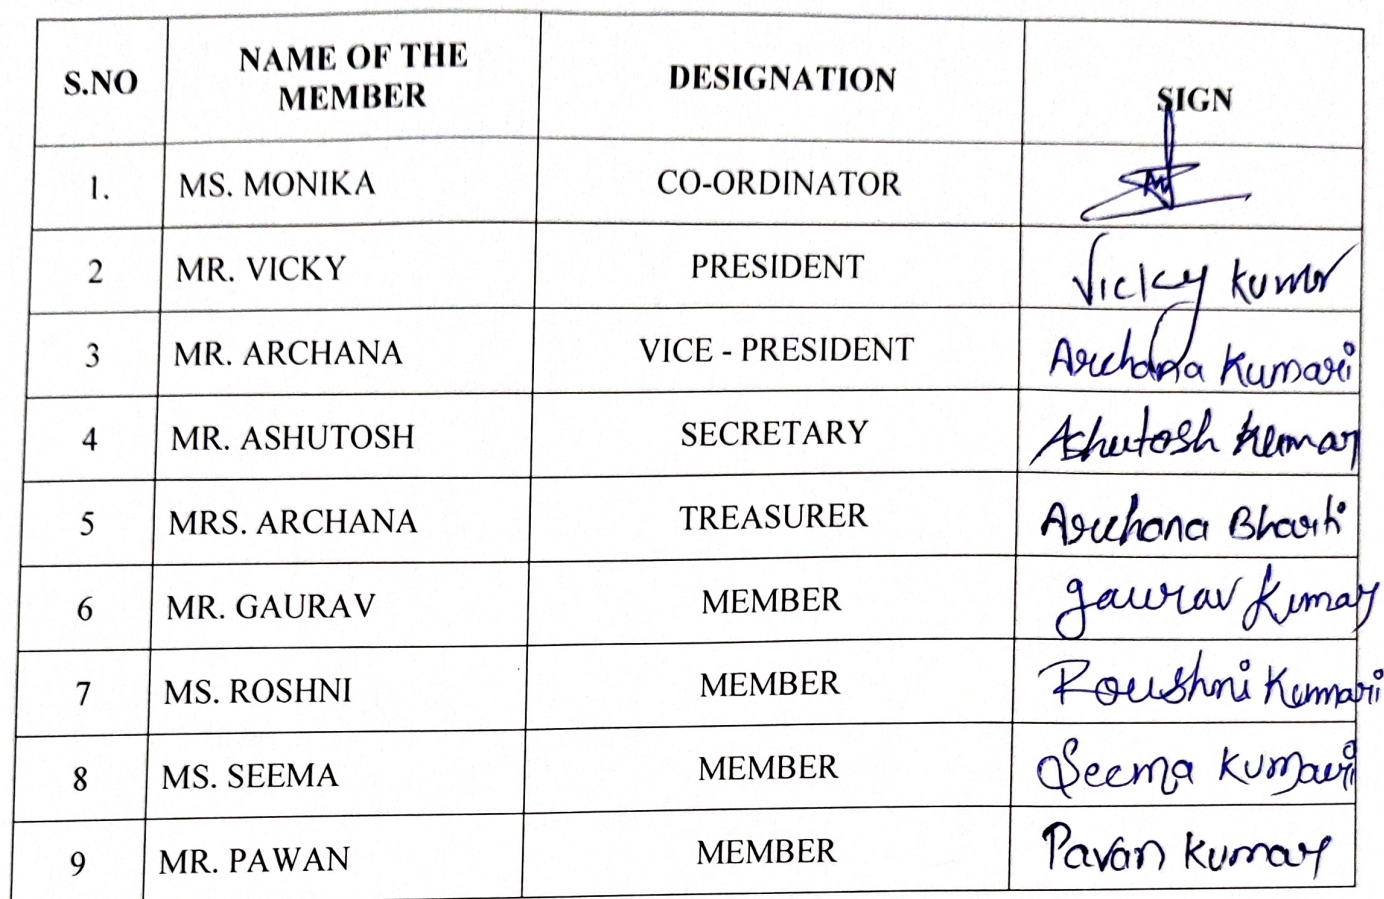 S.NO NAME OF THE MEMBER DESIGNATION SIGN
1. MS. MONIKA CO-ORDINATOR
2 MR. VICKY PRESIDENT Vicky Kumar
3 MR. ARCHANA VICE - PRESIDENT Archana Kumari
4 MR. ASHUTOSH SECRETARY Ashutosh Kumar
5 MRS. ARCHANA TREASURER Archana Bharti
6 MR. GAURAV MEMBER Gaurav Kumar
7 MS. ROSHNI MEMBER Roushni Kumari
8 MS. SEEMA MEMBER Seema Kumari
9 MR. PAWAN MEMBER Pavan Kumar